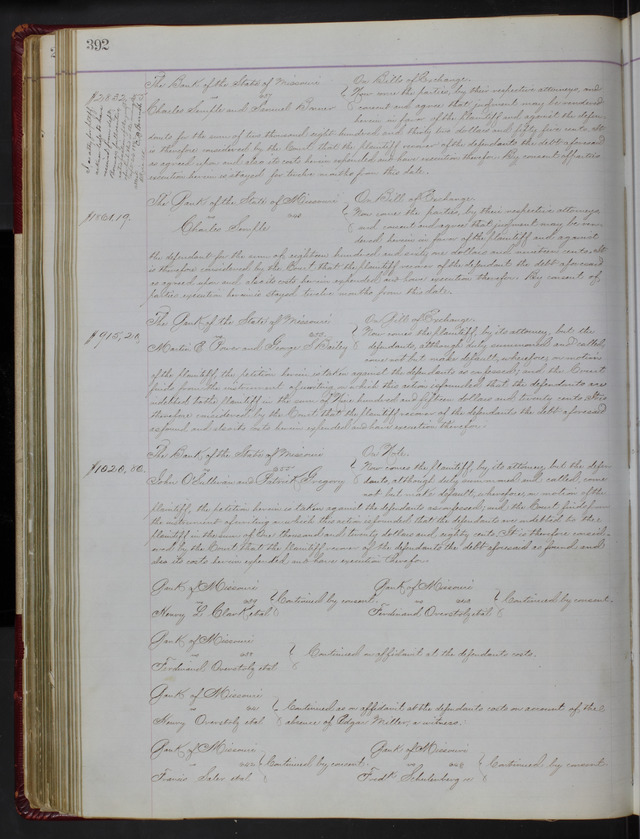 392
The Bank of the State of Missouri
vs
Charles Semple and Samuel
$2832.
On Bills of Exchange.
Now come the parties, by their respective attorneys, and
consent and agree that judgment may be rendered
herein in favor of the plaintiff and against the defen-
dants for the sum of two thousand eight hundred and thirty two dollars and fifty five cents. It
is therefore considered by the Court that the plaintiff recover of the defendants the debt aforesaid
as agreed upon and also its costs herein expended and have execution therefor. By consent of parties
execution herein is stayed for twelve months from this date.
The Bank of the State of Missouri
vs
Charles Semple
$1861.19.
On Bill of Exchange.
Now come the parties, by their respective attorneys
and consent and agree that judgment may be ren-
dered herein in favor of the plaintiff and against
the defendant for the sum of eighteen hundred and sixty one dollars and nineteen cents. It
is therefore considered by the Court that the plaintiff recover of the defendants the debt aforesaid
as agreed upon and also its costs herein expended and have execution therefor. By consent of
parties execution herein is stayed twelve months from this date.
The Bank of the State of Missouri
vs
Martin E. Power and George S. Bailey
$915,20,
On Bill of Exchange.
Now comes the plaintiff, by its attorney, but the
defendants, although duly summoned and called,
come not but make default; wherefore, on motion
of the plaintiff, the petition herein is taken against the defendants as confessed; and the Court
finds from the instrument of writing on which this action is founded, that the defendants are
indebted to the plaintiff in the sum of Nine hundred and fifteen dollars and twenty cents. It is
therefore considered by the Court that the plaintiff recover of the defendants the debt aforesaid
as found and also its costs herein expended and have execution therefor.
The Bank of the State of Missouri
vs
John O'Sullivan and Patrick Gregory
$1020,80.
On Note.
Now comes the plaintiff, by its attorney, but the defen-
dants, although duly summoned and called, come
not but make default; wherefore, on motion of the
plaintiff, the petition herein is taken against the defendants as confessed; and the Court finds from
the instrument of writing on which this action is founded that the defendants are indebted to the
plaintiff in the sum of One thousand and twenty dollars and eighty cents. It is therefore consid-
ered by the Court that the plaintiff recover of the defendants the debt aforesaid as found and
also its costs herein expended and have execution therefor.
Bank of Missouri
vs
Henry L. Clark etal
Continued by consent.
Bank of Missouri
vs
Ferdinand Overstolz etal
Continued by consent.
Bank of Missouri
vs
Ferdinand Overstolz etal
Continued on affidavit at the defendants costs.
Bank of Missouri
vs
Henry Overstolz etal
Continued as on affidavit at the defendants costs on account of the
absence of Edgar Miller, a witness.
Bank of Missouri
vs
Francis Saler etal
Continued by consent.
Bank of Missouri
vs
Fredk Schulenberg
Continued by consent.